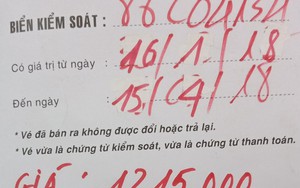 BIỂN KIỂM SOÁT: 86C04154
Có giá trị từ ngày 16/1/18
Đến ngày 15/04/18
* Vé đã bán ra không được đổi hoặc trả lại.
* Vé vừa là chứng từ kiểm soát, vừa là chứng từ thanh toán.
GIÁ: 1215000